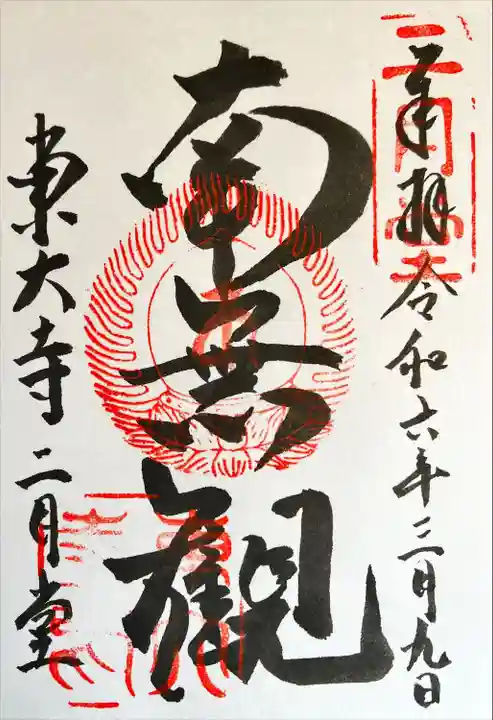 奉拝 令和六年三月九日
南無観
東大寺 二月堂
二月堂